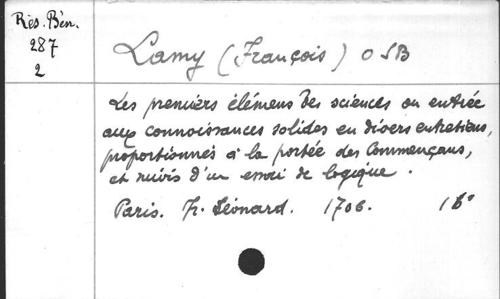 Rés. Bén.
287
2
Lamy (François) OSB
Les premiers élémens des sciences ou entrée
aux connoissances solides en divers entretiens,
proportionnés à la portée des Commençans,
et suivis d'un essai de logique.
Paris. Fr. Léonard. 1706. 16°